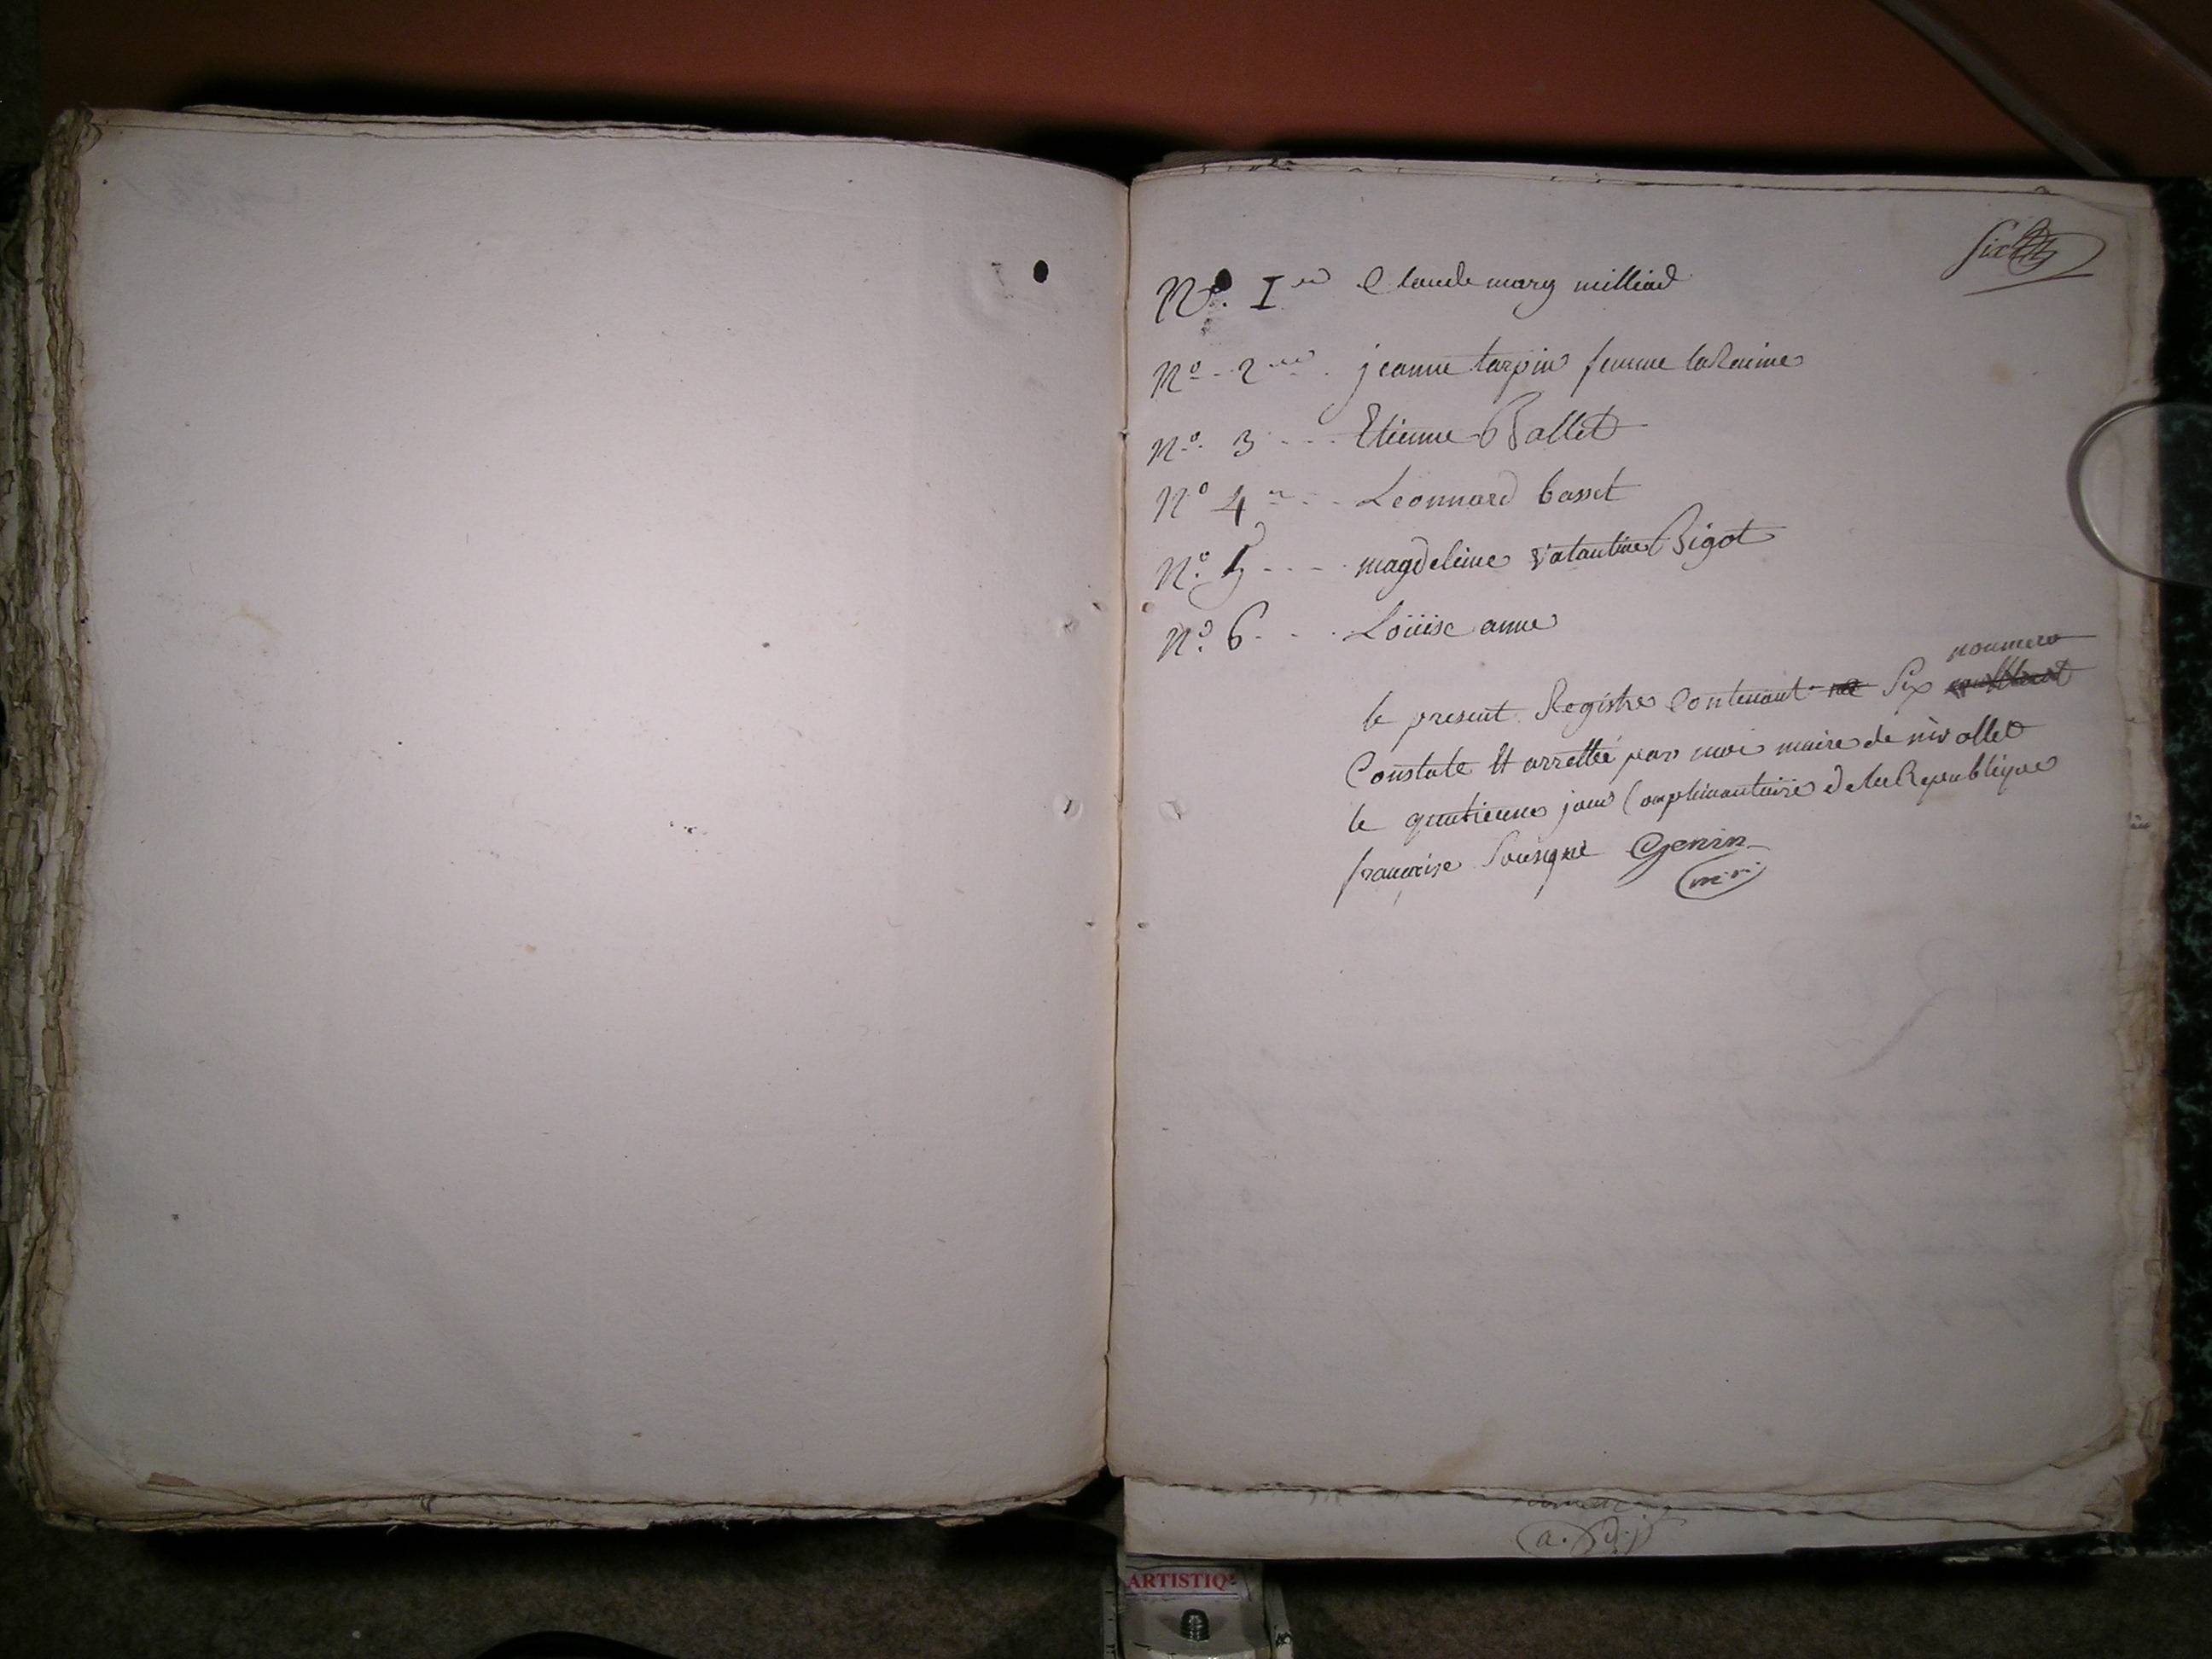 six
N°. 1er Claude mary milliad
N° - 2me . jeanne tarpin femme laRaine
N°. 3 - - - Etienne Ballet
N° 4 - - - Leonnard basset
N°. 5 - - - magdeleine vatantine Bigot
N°. 6 - - - Loüise anne
noumero
le present Registre Contenant Six
Constate Et arrettée par moi maire de nivollet
le quatrieme jour Complimantaire de la Republique
francoise Sousigné Genin
ARTISTIQ